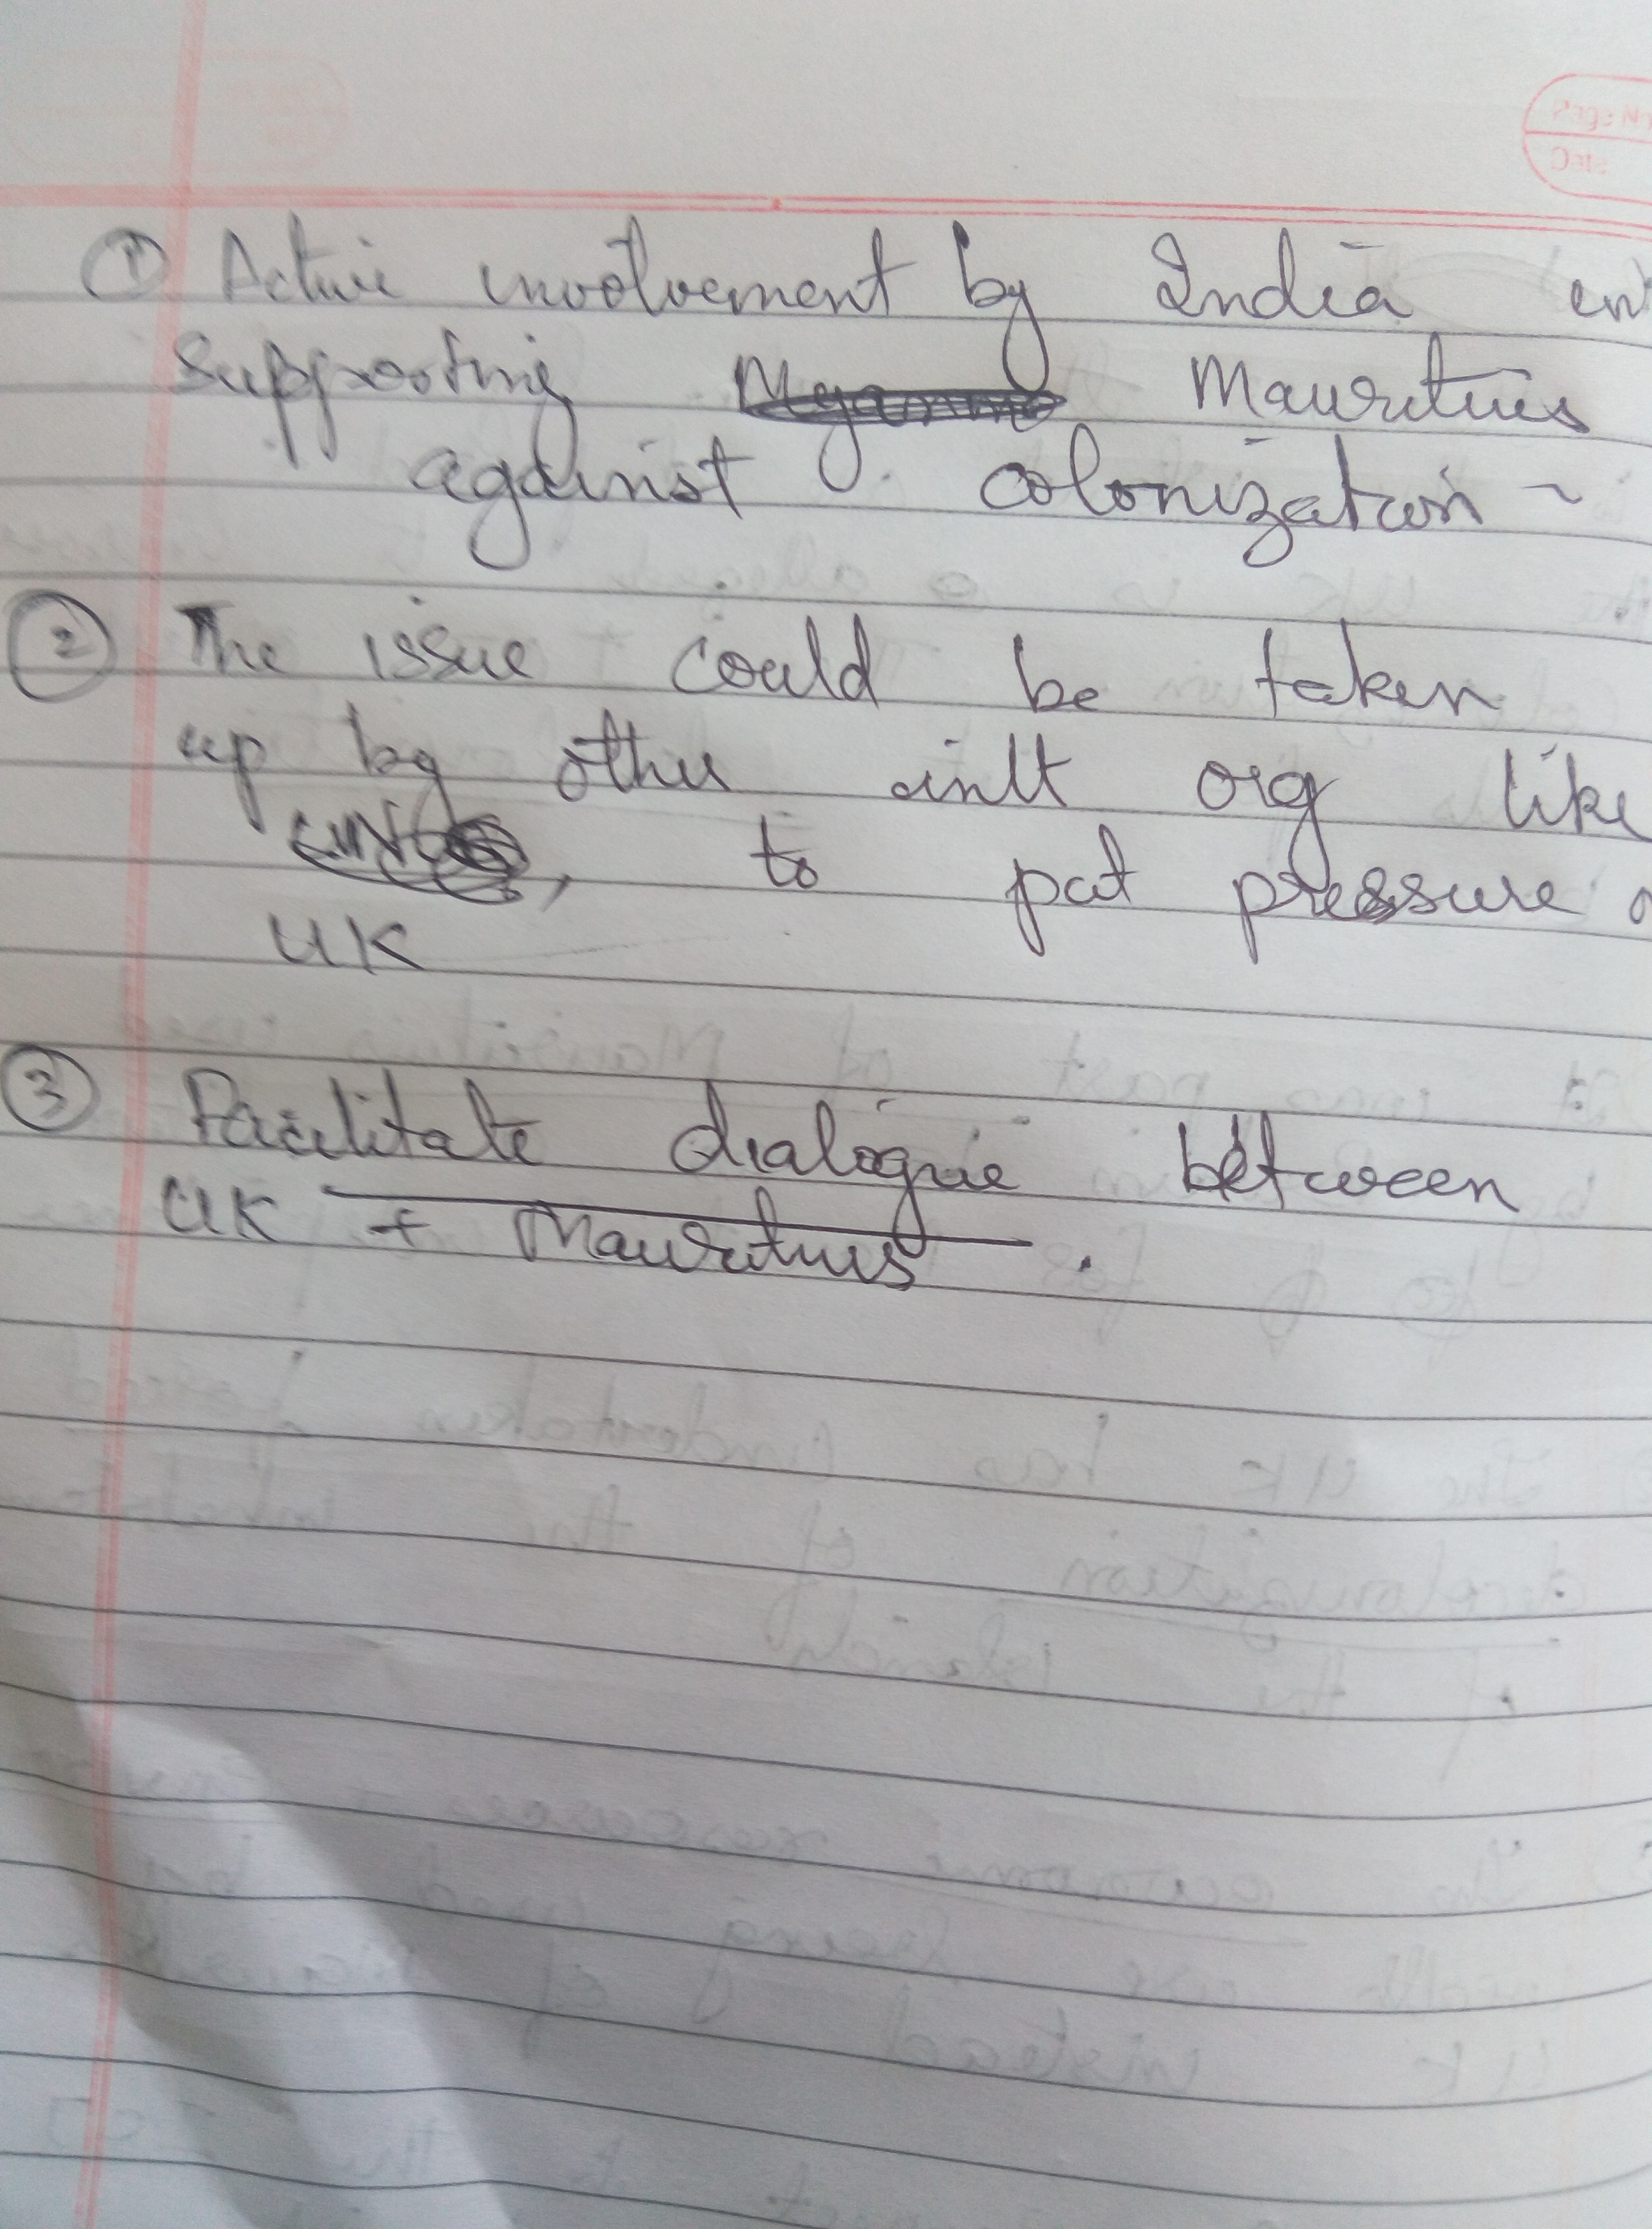 ① Active involvement by India in
supporting Mauritius
against colonization -
② The issue could be taken
up by other intt org like
, to put pressure
UK
③ Facilitate dialogue between
UK + Mauritius .